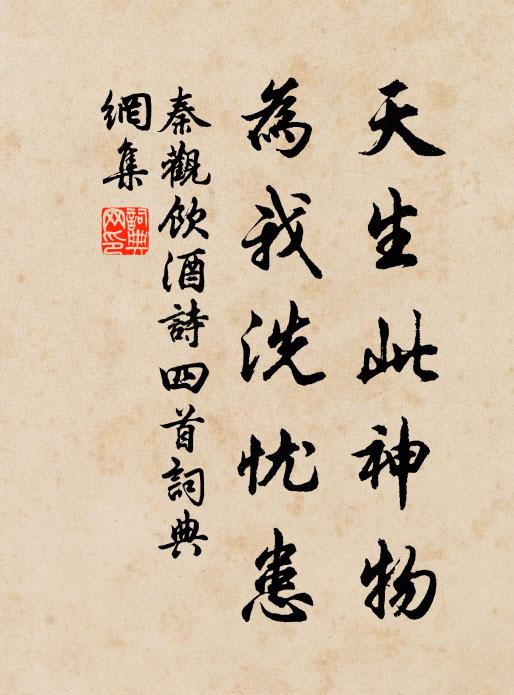 天生此神物
為我洗忧患
秦觀飲酒詩四首詞典
網集
詞典
网印